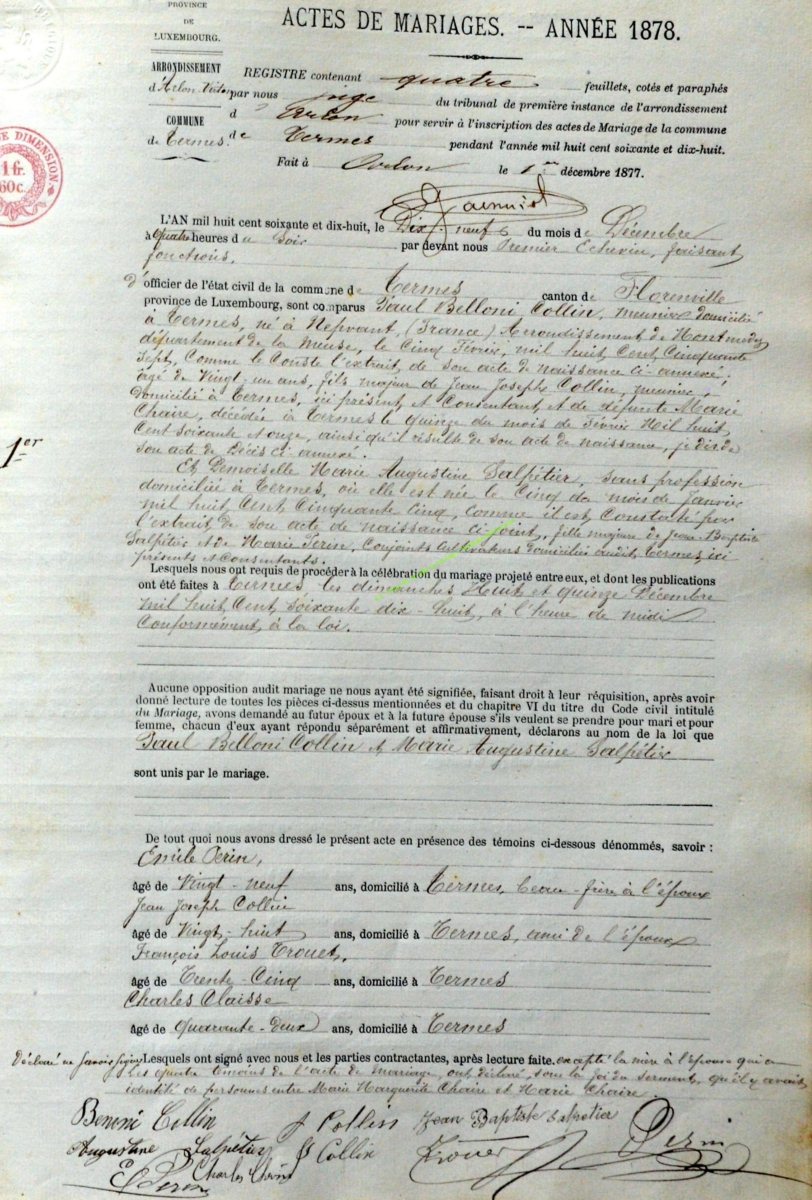 PROVINCE
DE
LUXEMBOURG.
ARRONDISSEMENT
d'Arlon Virton
COMMUNE
de Termes.
DIMENSION
1 fr.
60c.
ACTES DE MARIAGES. -- ANNÉE 1878.
REGISTRE contenant quatre feuillets, cotés et paraphés
par nous juge du tribunal de première instance de l'arrondissement
d Arlon pour servir à l'inscription des actes de Mariage de la commune
de Termes pendant l'année mil huit cent soixante et dix-huit.
Fait à Arlon le 1er décembre 1877.
L'AN mil huit cent soixante et dix-huit, le Dix-neuf du mois de Décembre
à quatre heures du Soir par devant nous Premier Echevin, faisant
fonctions,
d'officier de l'état civil de la commune de Termes canton de Florenville
province de Luxembourg, sont comparus Paul Belloni Collin, meunier domicilié
à Termes, né à Nepvant, (France) Arrondissement de Montmédy
département de la Meuse, le Cinq Février, mil huit Cent Cinquante
Sept, Comme le Conste l'extrait de son acte de naissance ci-annexé,
âgé de Vingt-un ans, fils majeur de Jean Joseph Collin, meunier,
domicilié à Termes, ici présent et Consentant, et de défunte Marie
Choire, décédée à Termes le quinze du mois de Février Mil huit
Cent soixante et onze, ainsi qu'il résulte de son acte de naissance, je dis de
son acte de Décès ci-annexé.
1er
Et Demoiselle Marie Augustine Salpétier, sans profession
domiciliée à Termes, où elle est née le Cinq du mois de Janvier
mil huit Cent Cinquante Cinq, comme il est Constaté par
l'extrait de son acte de naissance ci-joint, fille majeure de Jean Baptiste
Salpétier et de Marie Perin, Conjoints Cultivateurs domiciliés audit Termes, ici
présents et Consentants.
Lesquels nous ont requis de procéder à la célébration du mariage projeté entre eux, et dont les publications
ont été faites à Termes, les dimanches Huit et quinze Décembre
mil huit Cent soixante dix-huit, à l'heure de midi
Conformément à la loi.
Aucune opposition audit mariage ne nous ayant été signifiée, faisant droit à leur réquisition, après avoir
donné lecture de toutes les pièces ci-dessus mentionnées et du chapitre VI du titre du Code civil intitulé
du Mariage, avons demandé au futur époux et à la future épouse s'ils veulent se prendre pour mari et pour
femme, chacun d'eux ayant répondu séparément et affirmativement, déclarons au nom de la loi que
Paul Belloni Collin et Marie Augustine Salpétier
sont unis par le mariage.
De tout quoi nous avons dressé le présent acte en présence des témoins ci-dessous dénommés, savoir :
Emile Perin,
âgé de Vingt-neuf ans, domicilié à Termes, beau-frère à l'époux
Jean Joseph Collin
âgé de Vingt-huit ans, domicilié à Termes, ami de l'époux
François Louis Trouet,
âgé de Trente-Cinq ans, domicilié à Termes
Charles Claisse
âgé de Quarante-Deux ans, domicilié à Termes
Déclaré ne savoir signer Lesquels ont signé avec nous et les parties contractantes, après lecture faite. excepté la mère à l'épouse qui a
Les quatre témoins de l'acte de mariage, ont déclaré, sous la foi du serment, qu'il y avait
identité de personnes entre Marie Marguerite Choire et Marie Choire.
Benoni Collin J Collin Jean Baptiste Salpetier
Augustine Salpétier JJ Collin Trouet Perin
E Perin Charles